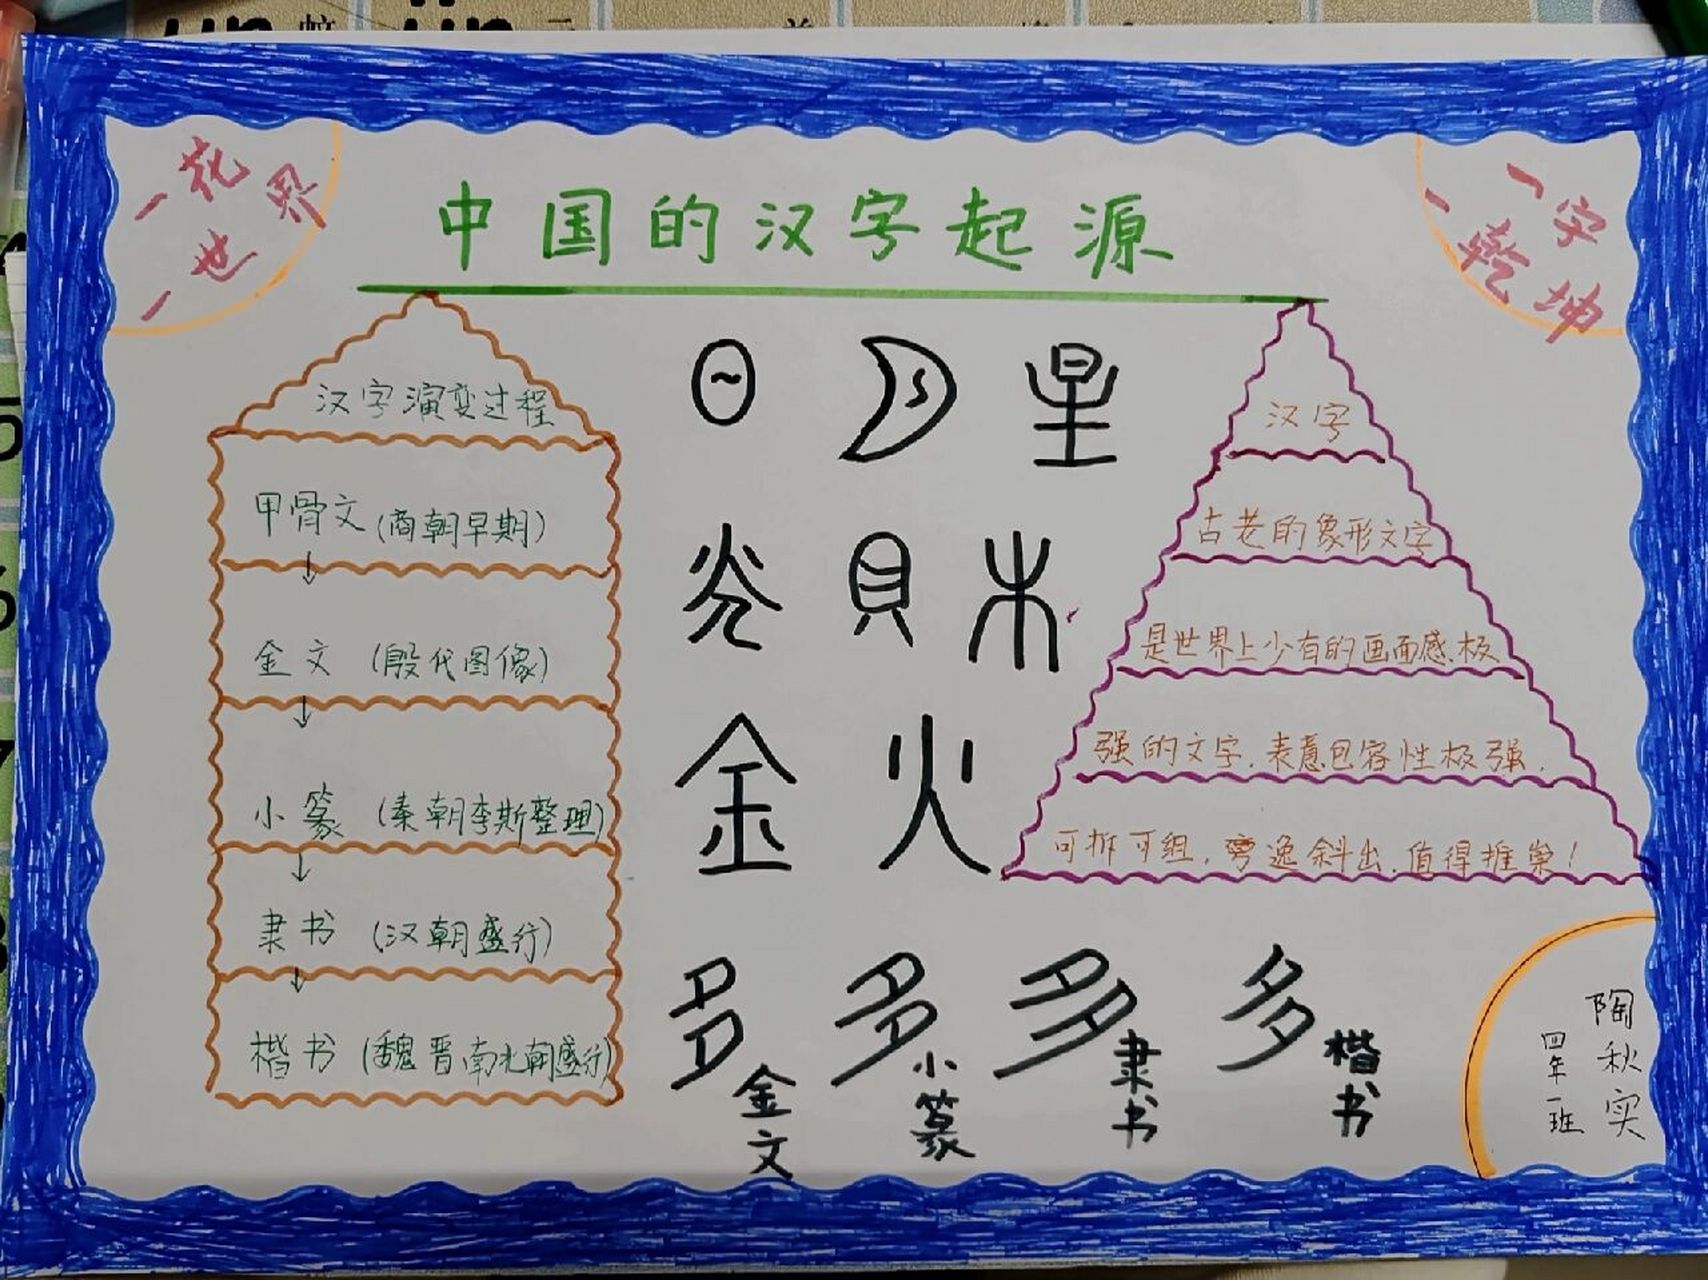 一花
一世界
中国的汉字起源
一字
一乾坤
汉字演变过程
甲骨文(商朝早期)
↓
金文(殷代图像)
↓
小篆(秦朝李斯整理)
↓
隶书(汉朝盛行)
↓
楷书(魏晋南北朝盛行)
日 月 星
贝 木
金 火
汉字
古老的象形文字
是世界上少有的画面感极
强的文字.表意包容性极强.
可拆可组.弯逸斜出.值得推崇!
多 金文
多 小篆
多 隶书
多 楷书
陶秋实
四年一班